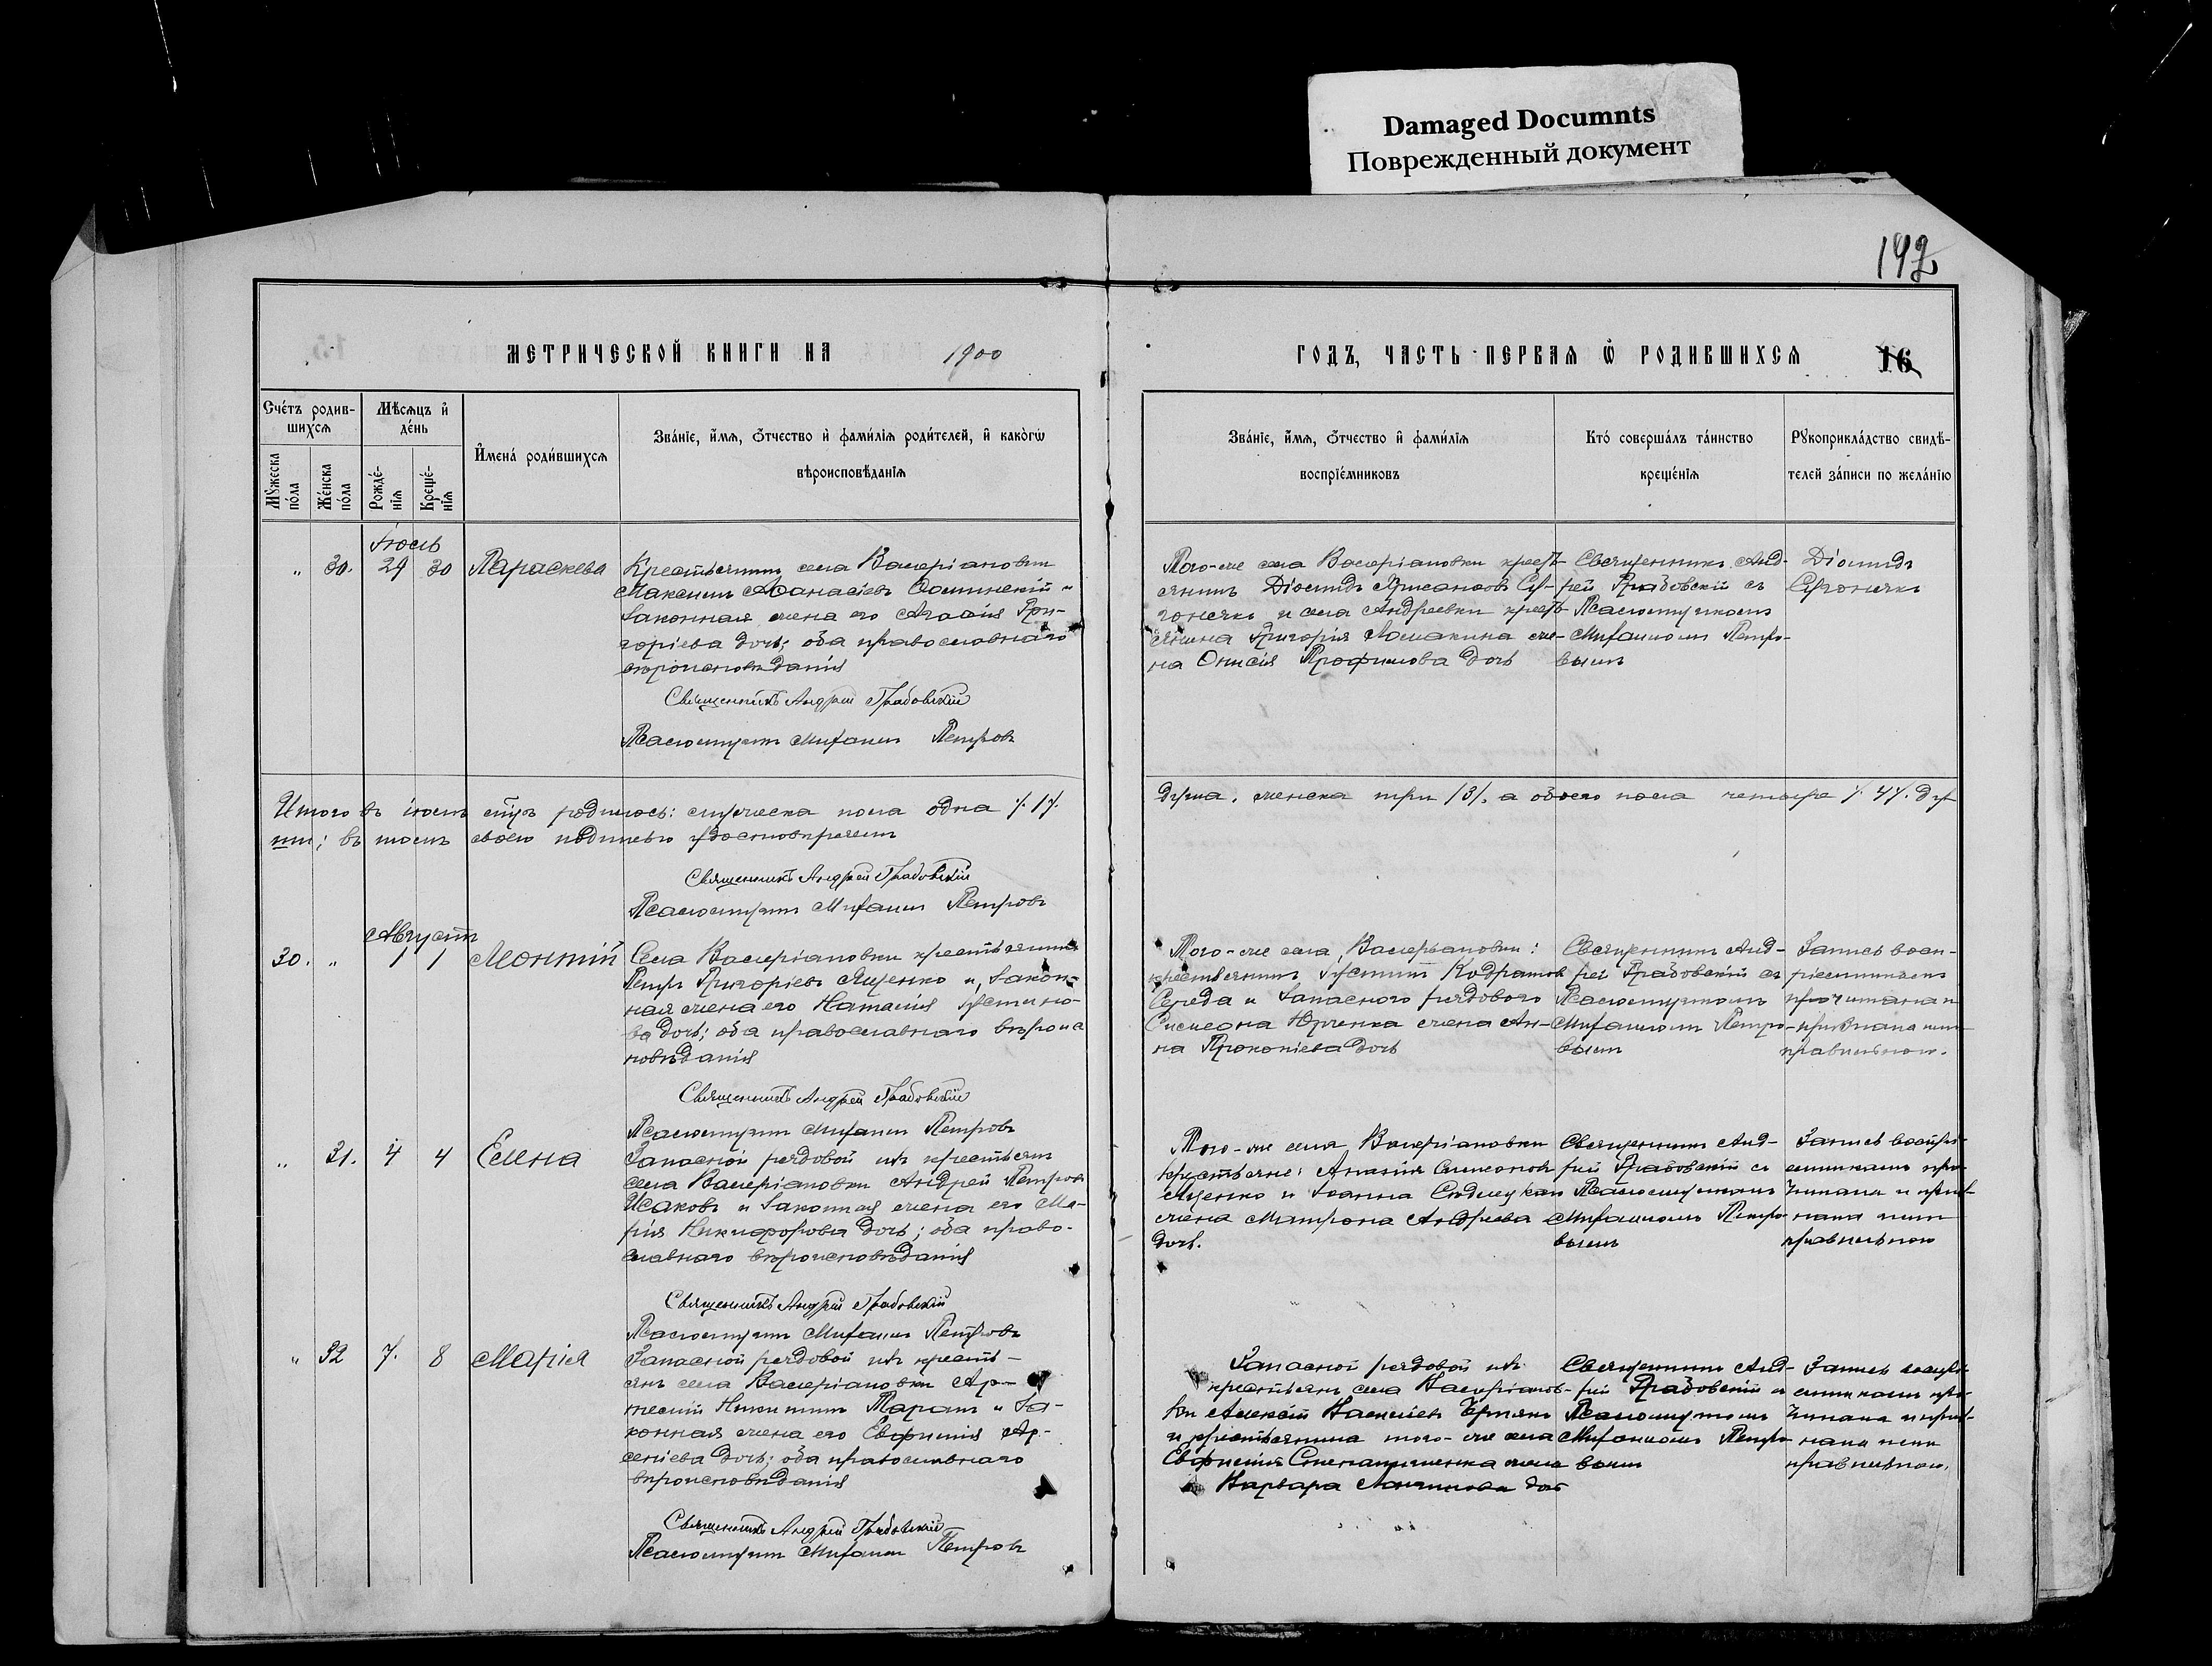 Damaged Documnts
Поврежденный документ
192
МЕТРИЧЕСКОЙ КНИГИ НА 1900
ГОДЪ, ЧАСТЬ ПЕРВАЯ Ѿ РОДИВШИХСЯ
16
Сче́тъ родив-
шихсѧ
Мѣсѧцъ и҆
де́нь
Му́жеска
по́ла
Же́нска
по́ла
Рожде́-
нїѧ
Креще́-
нїѧ
И҆мена̀ роди́вшихсѧ
Зва́нїе, и҆́мѧ, ѻ҆́тчество и҆ фами́лїѧ роди́телей, и҆ како́гѡ
вѣроисповѣ́данїѧ
Зва́нїе, и҆́мѧ, ѻ҆́тчество и҆ фами́лїѧ
воспрїе́мниковъ
Кто́ соверша́лъ та́инство
креще́нїѧ
Рꙋкоприкла́дство свидѣ́-
телей за́писи по жела́нїю
Іюль
" 30. 29 30 Параскева
Крестьянинъ села Валеріановки
Максимъ Аѳанасіевъ и
законная жена его Агаѳія Гри-
горіева дочь; оба православнаго
вѣроисповѣданія
Священникъ Андрей Грабовскій
Псаломщикъ Митрофанъ Петровъ
Того-же села Валеріановки крест-
янинъ Діомидъ
и села Андреевки крест-
янина Григорія Ломакина же-
на Онисія Трофимова дочь
Священникъ Анд-
рей Грабовскій съ
Псаломщикомъ
Петро-
вымъ
Діомидъ
Итого въ іюлѣ родилось: мужеска пола одна /1/.
душа, женска три /3/, а обоего пола четыре /4/. ду
ши; въ томъ своею подписью удостовѣряемъ
Священникъ Андрей Грабовскій
Псаломщикъ Петровъ
Августъ
30. " 1 1 Леонтій
Села Валеріановки крестьянинъ
Петръ Григоріевъ Яценко и закон-
ная жена его Наталія Іустино-
ва дочь; оба православнаго вѣроис
повѣданія
Священникъ Андрей Грабовскій
Псаломщикъ Петровъ
Того-же села Валеріановки:
крестьянинъ Іустинъ Кодратовъ
Середа и запасного рядового
Симеона Юрченка жена Ан-
на Прокопіева дочь
Священникъ Анд-
рей Грабовскій съ
Псаломщикомъ
Петро-
вымъ
Запись восп-
ріемникамъ
прочитана и
признана ими
правильною.
" 31. 4 4 Елена
Запасной рядовой изъ крестьянъ
села Валеріановки Андрей Петровъ
Исаковъ и законная жена его Ма-
рія Никифорова дочь; оба право-
славнаго вѣроисповѣданія
Священникъ Андрей Грабовскій
Псаломщикъ Петровъ
Того-же села Валеріановки
крестьяне: Ананія Симеоновъ
Яценко и Іоанна
жена Матрона Андреева
дочь.
Священникъ Анд-
рей Грабовскій съ
Псаломщикомъ
Петро-
вымъ
Запись воспрі-
емникамъ про-
читана и приз-
нана ими
правильною
" 32 7. 8 Марія
Запасной рядовой изъ кресть-
янъ села Валеріановки Ар-
темій Никитинъ Таранъ и за-
конная жена его Евфимія Ар-
сеніева дочь; оба православнаго
вѣроисповѣданія
Священникъ Андрей Грабовскій
Псаломщикъ Петровъ
Запасной рядовой изъ
крестьянъ села Валеріанов-
ки Алексій Василіевъ
и крестьянина того-же села
Евфимія жена
Варвара дочь
Священникъ Анд-
рей Грабовскій съ
Псаломщикомъ
Петро-
вымъ
Запись воспрі-
емникамъ про-
читана и приз-
нана ими
правильною.